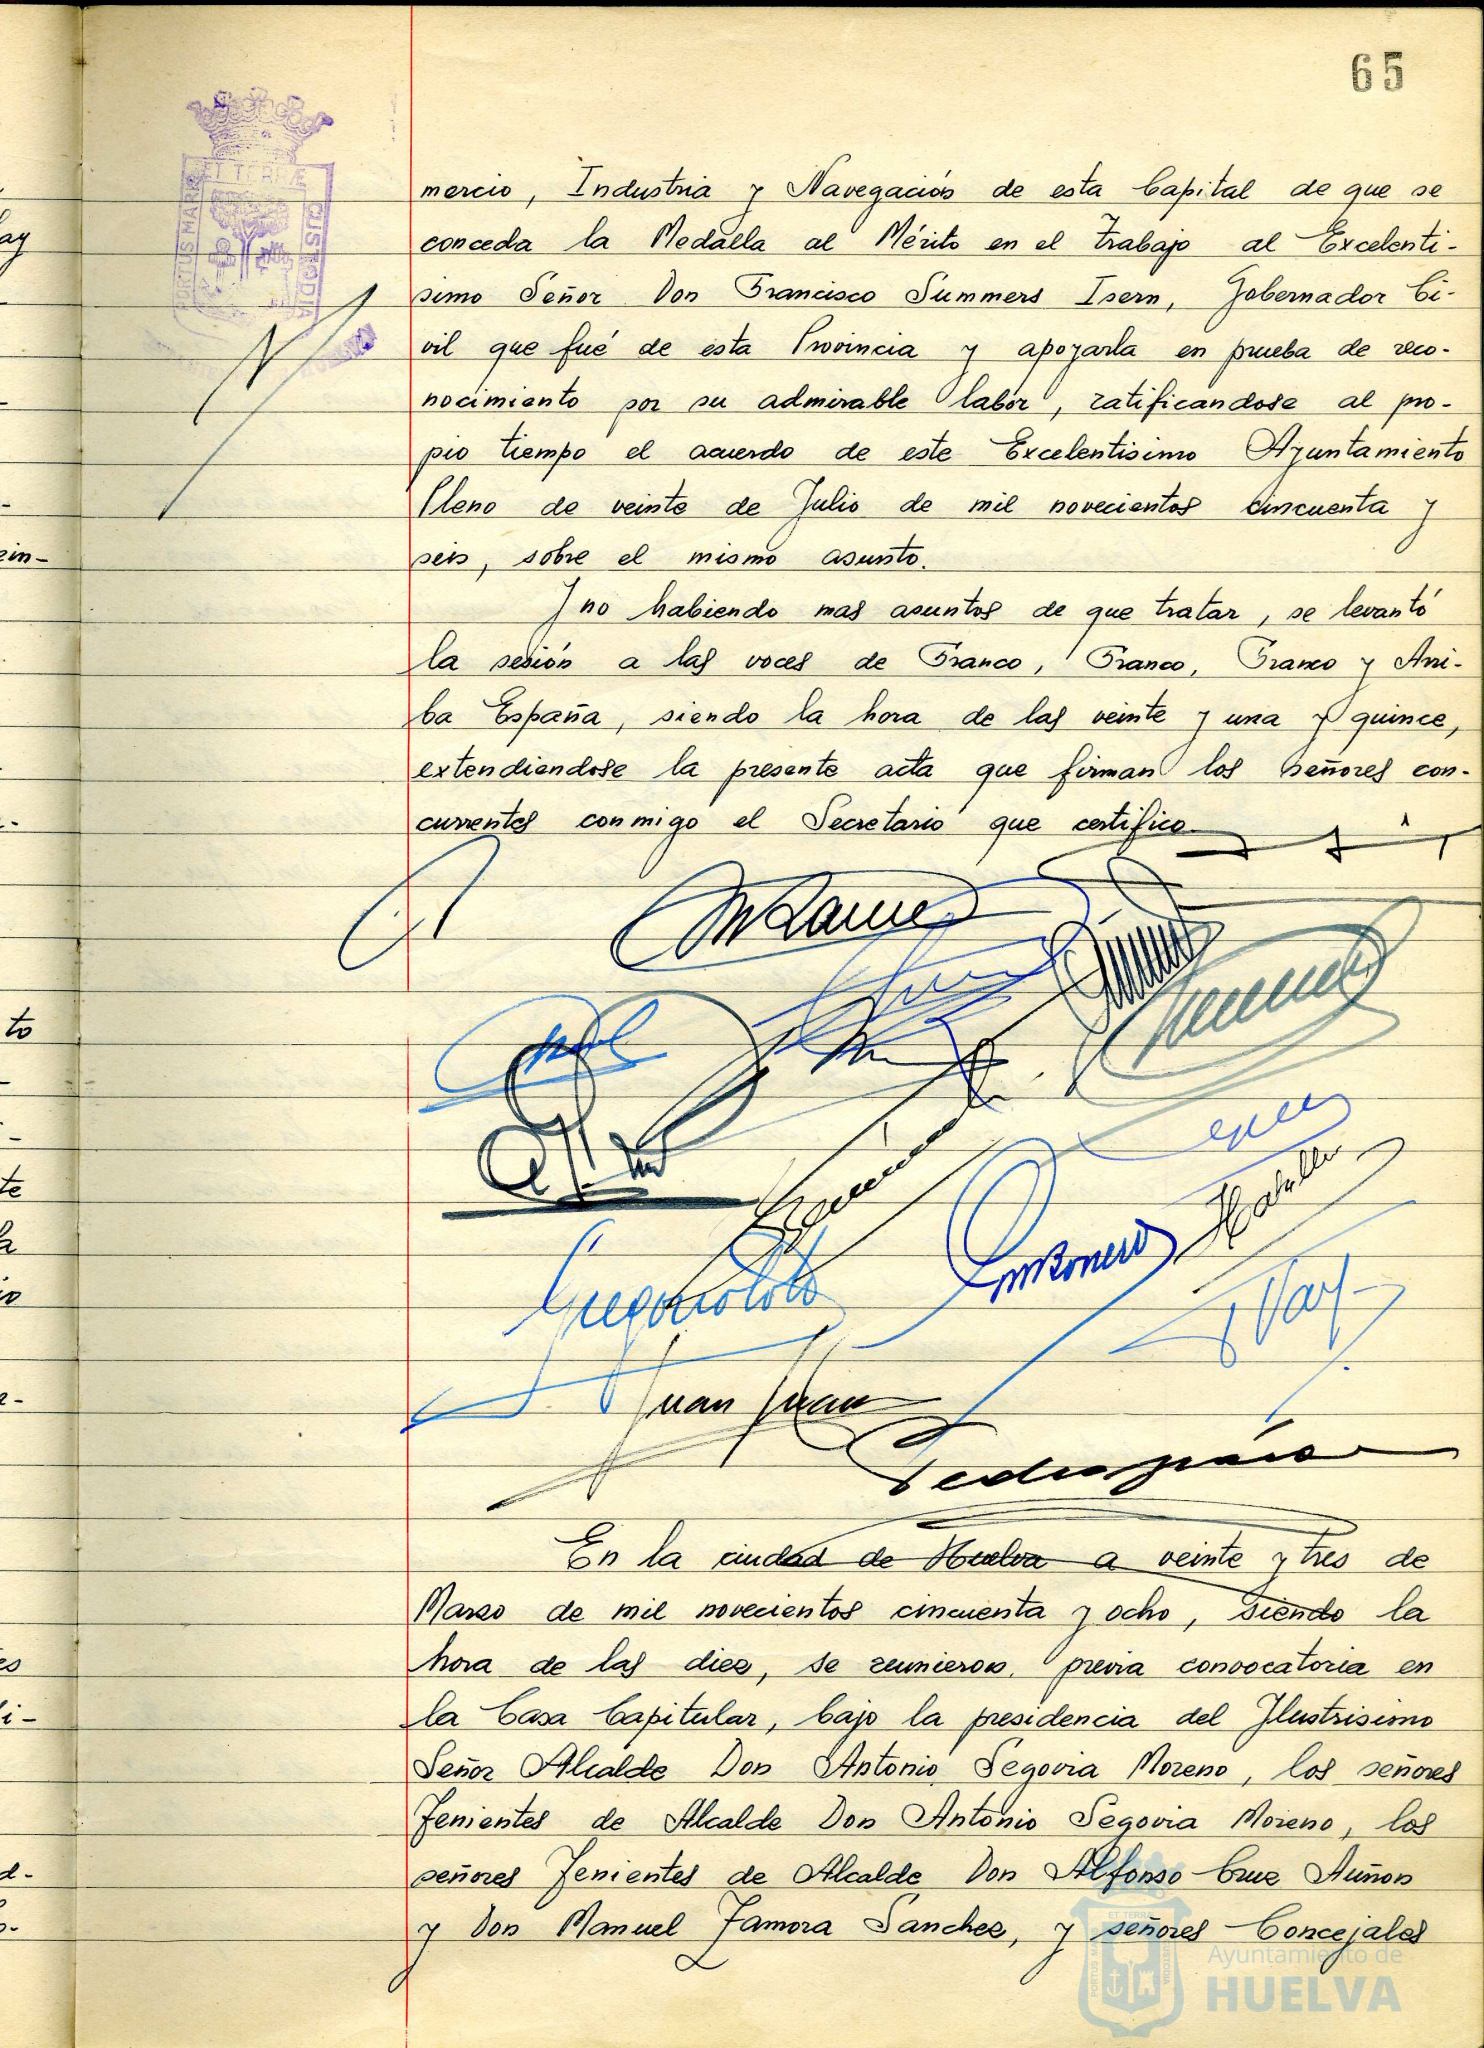 65
ET TERRÆ
PORTUS MARIS
CUSTODIA
mercio, Industria y Navegación de esta Capital de que se
conceda la Medalla al Mérito en el trabajo al Excelenti-
simo Señor Don Francisco Summers Isern, Gobernador Ci-
vil que fué de esta Provincia y apoyarla en prueba de reco-
nocimiento por su admirable labor, ratificandose al pro-
pio tiempo el acuerdo de este Excelentisimo Ayuntamiento
Pleno de veinte de Julio de mil novecientos cincuenta y
seis, sobre el mismo asunto.
Y no habiendo mas asuntos de que tratar, se levantó
la sesión a las voces de Franco, Franco, Franco y Arri-
ba España, siendo la hora de las veinte y una y quince,
extendiendose la presente acta que firman los señores con-
currentes conmigo el Secretario que certifico
Juan
En la ciudad de Huelva a veinte y tres de
Marzo de mil novecientos cincuenta y ocho, siendo la
hora de las diez, se reunieron, previa convocatoria en
la Casa Capitular, bajo la presidencia del Ilustrisimo
Señor Alcalde Don Antonio Segovia Moreno, los señores
Tenientes de Alcalde Don Antonio Segovia Moreno, los
señores Tenientes de Alcalde Don Alfonso Cruz Auñon
y Don Manuel Zamora Sanchez, y señores Concejales
Ayuntamiento de
HUELVA